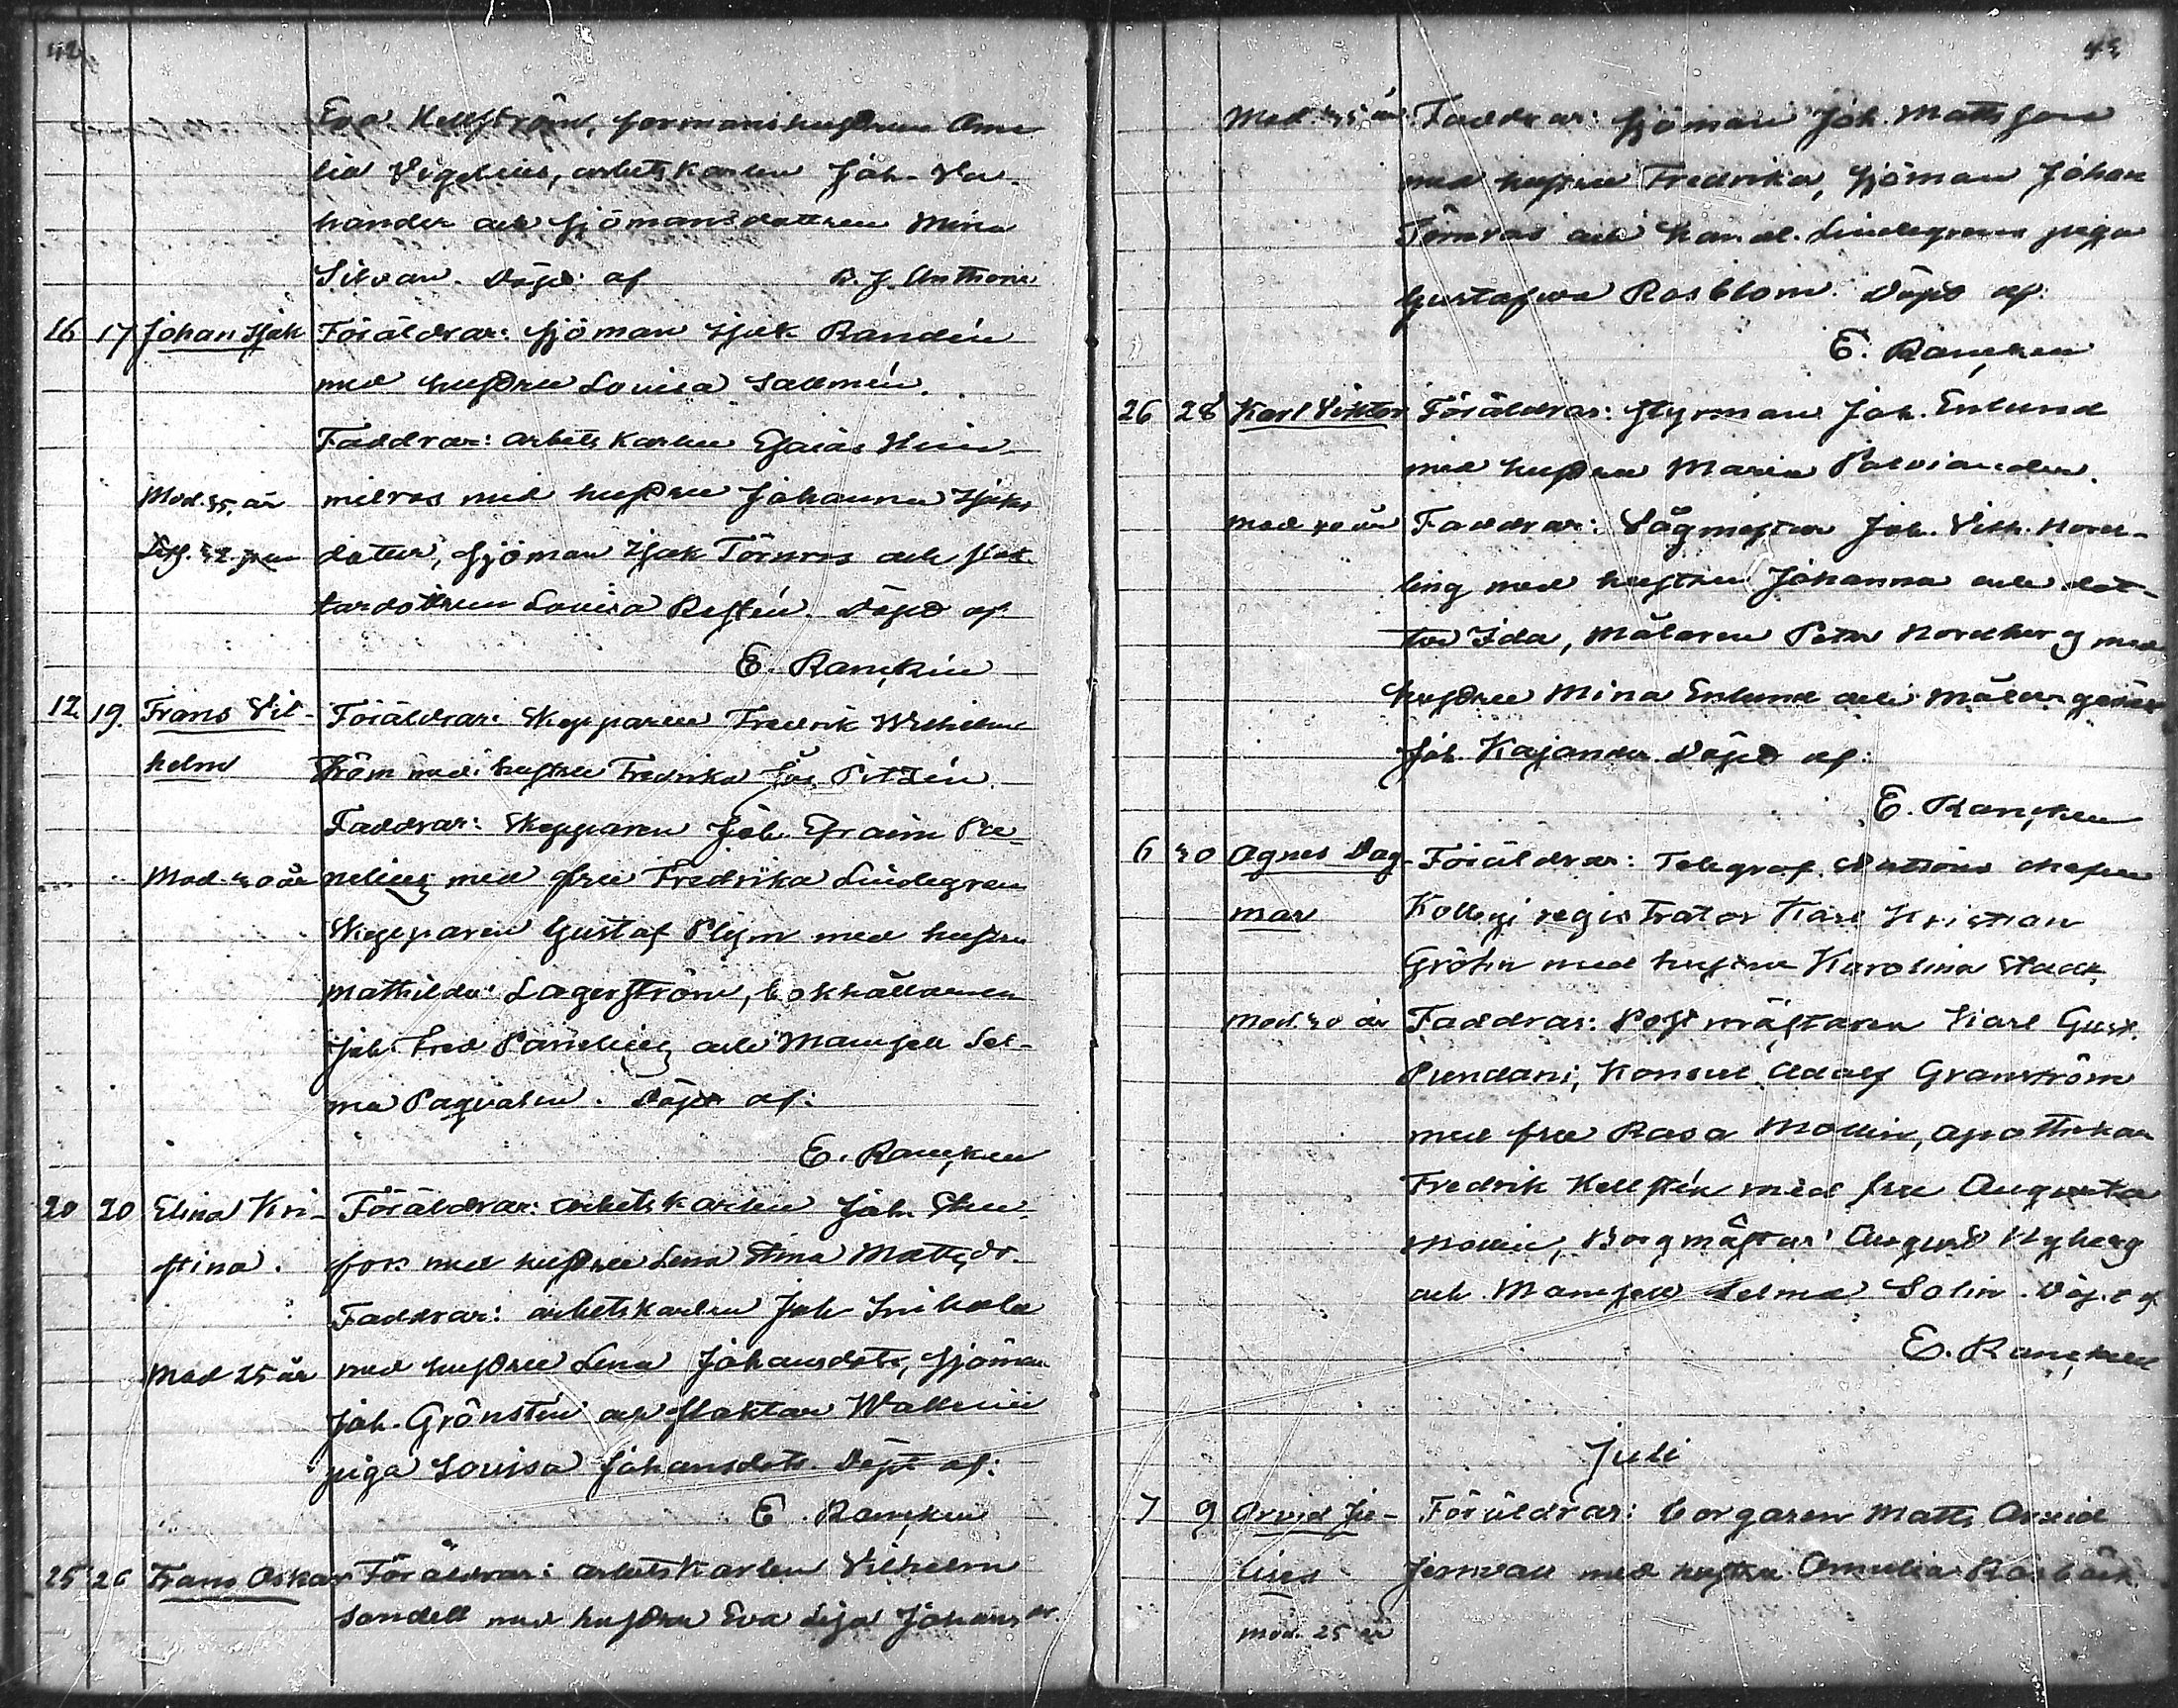 42
Eva Hellström, formanshustrun Ame
lia Vigelius, arbetskarlen Joh. Va-
hander och sjömansdottren Mina
Silvan. Döpt af
16 17 Johan Isak Föräldrar: sjöman Isak Randén
med hustru Lovisa Sallmén.
Faddrar: arbetskarlen Esaias Him-
Mod. 35. år milros med hustru Johanna Isaks
dotter, sjöman Isak Törnros och slak
tardottren Lovisa Restén. Döpt af
E. Rancken
12 19. Frans Vil- Föräldrar: Skepparen Fredrik Wilhelm
helm Ström med hustru Fredrika Pitzén.
Faddrar: Skepparen Joh. Efraim Pe-
Mod. 30 år nelius med fru Fredrika Lindegren
Skepparen Gustaf Plym med hustru
Mathilda Lagerström, bokhållaren
Joh. Fred Panelius och Mamsell Sel-
ma Paqvalin. Döpt af:
E. Rancken
20 20 Elina Kri- Föräldrar: arbetskarlen Joh. Sten-
stina. fors med hustru Lena Stina Mattsdr.
Faddrar: arbetskarlen Joh
Mod 25 år med hustru Lena Johansdotr, sjöman
Joh. Grönstén och slaktar Wallmén
piga Lovisa Johansdotr. Döpt af:
E. Rancken
25 26 Frans Oskar Föräldrar: arbetskarlen Vilhelm
Sandell med hustru Eva Lisa Johansdr
43
Mod. 35 år Faddrar: sjöman Joh. Mattsson
med hustru Fredrika, sjöman Johan
Törnros och Handl. Lindegrens piga
Gustafva Rosblom. Döpt af:
E. Rancken
26 28 Karl Viktor Föräldrar: styrman Joh. Enlund
med hustru Maria Palviander.
Mod 40 år Faddrar: Vågmästar Joh. Vilh. Nord-
ling med hustru Johanna och dot-
ter Ida, Målaren Petter Nordberg med
hustru Mina Enlund och Målargesäll
Joh. Kajander. Döpt af:
E. Rancken
6 30 Agnes Dag- Föräldrar: Telegraf Stations chefen
mar Kollegi registrator Karl Kristian
Gröhn med hustru Karolina Stade,
Mod. 30 år Faddrar: Postmästaren Karl Gust.
Pundani, Konsul Adolf Granström
med fru Rosa Molin, apothekar
Fredrik Hellstén med fru Augusta
Molin, Borgmästar August Nyberg
och Mamsell Selma Solin. Döpt af
E. Rancken
Juli
7 9 Arvid Ju- Föräldrar: borgaren Matts Arvid
lius Jernvall med hustru Amelia Rosbäck.
Mod. 25 år